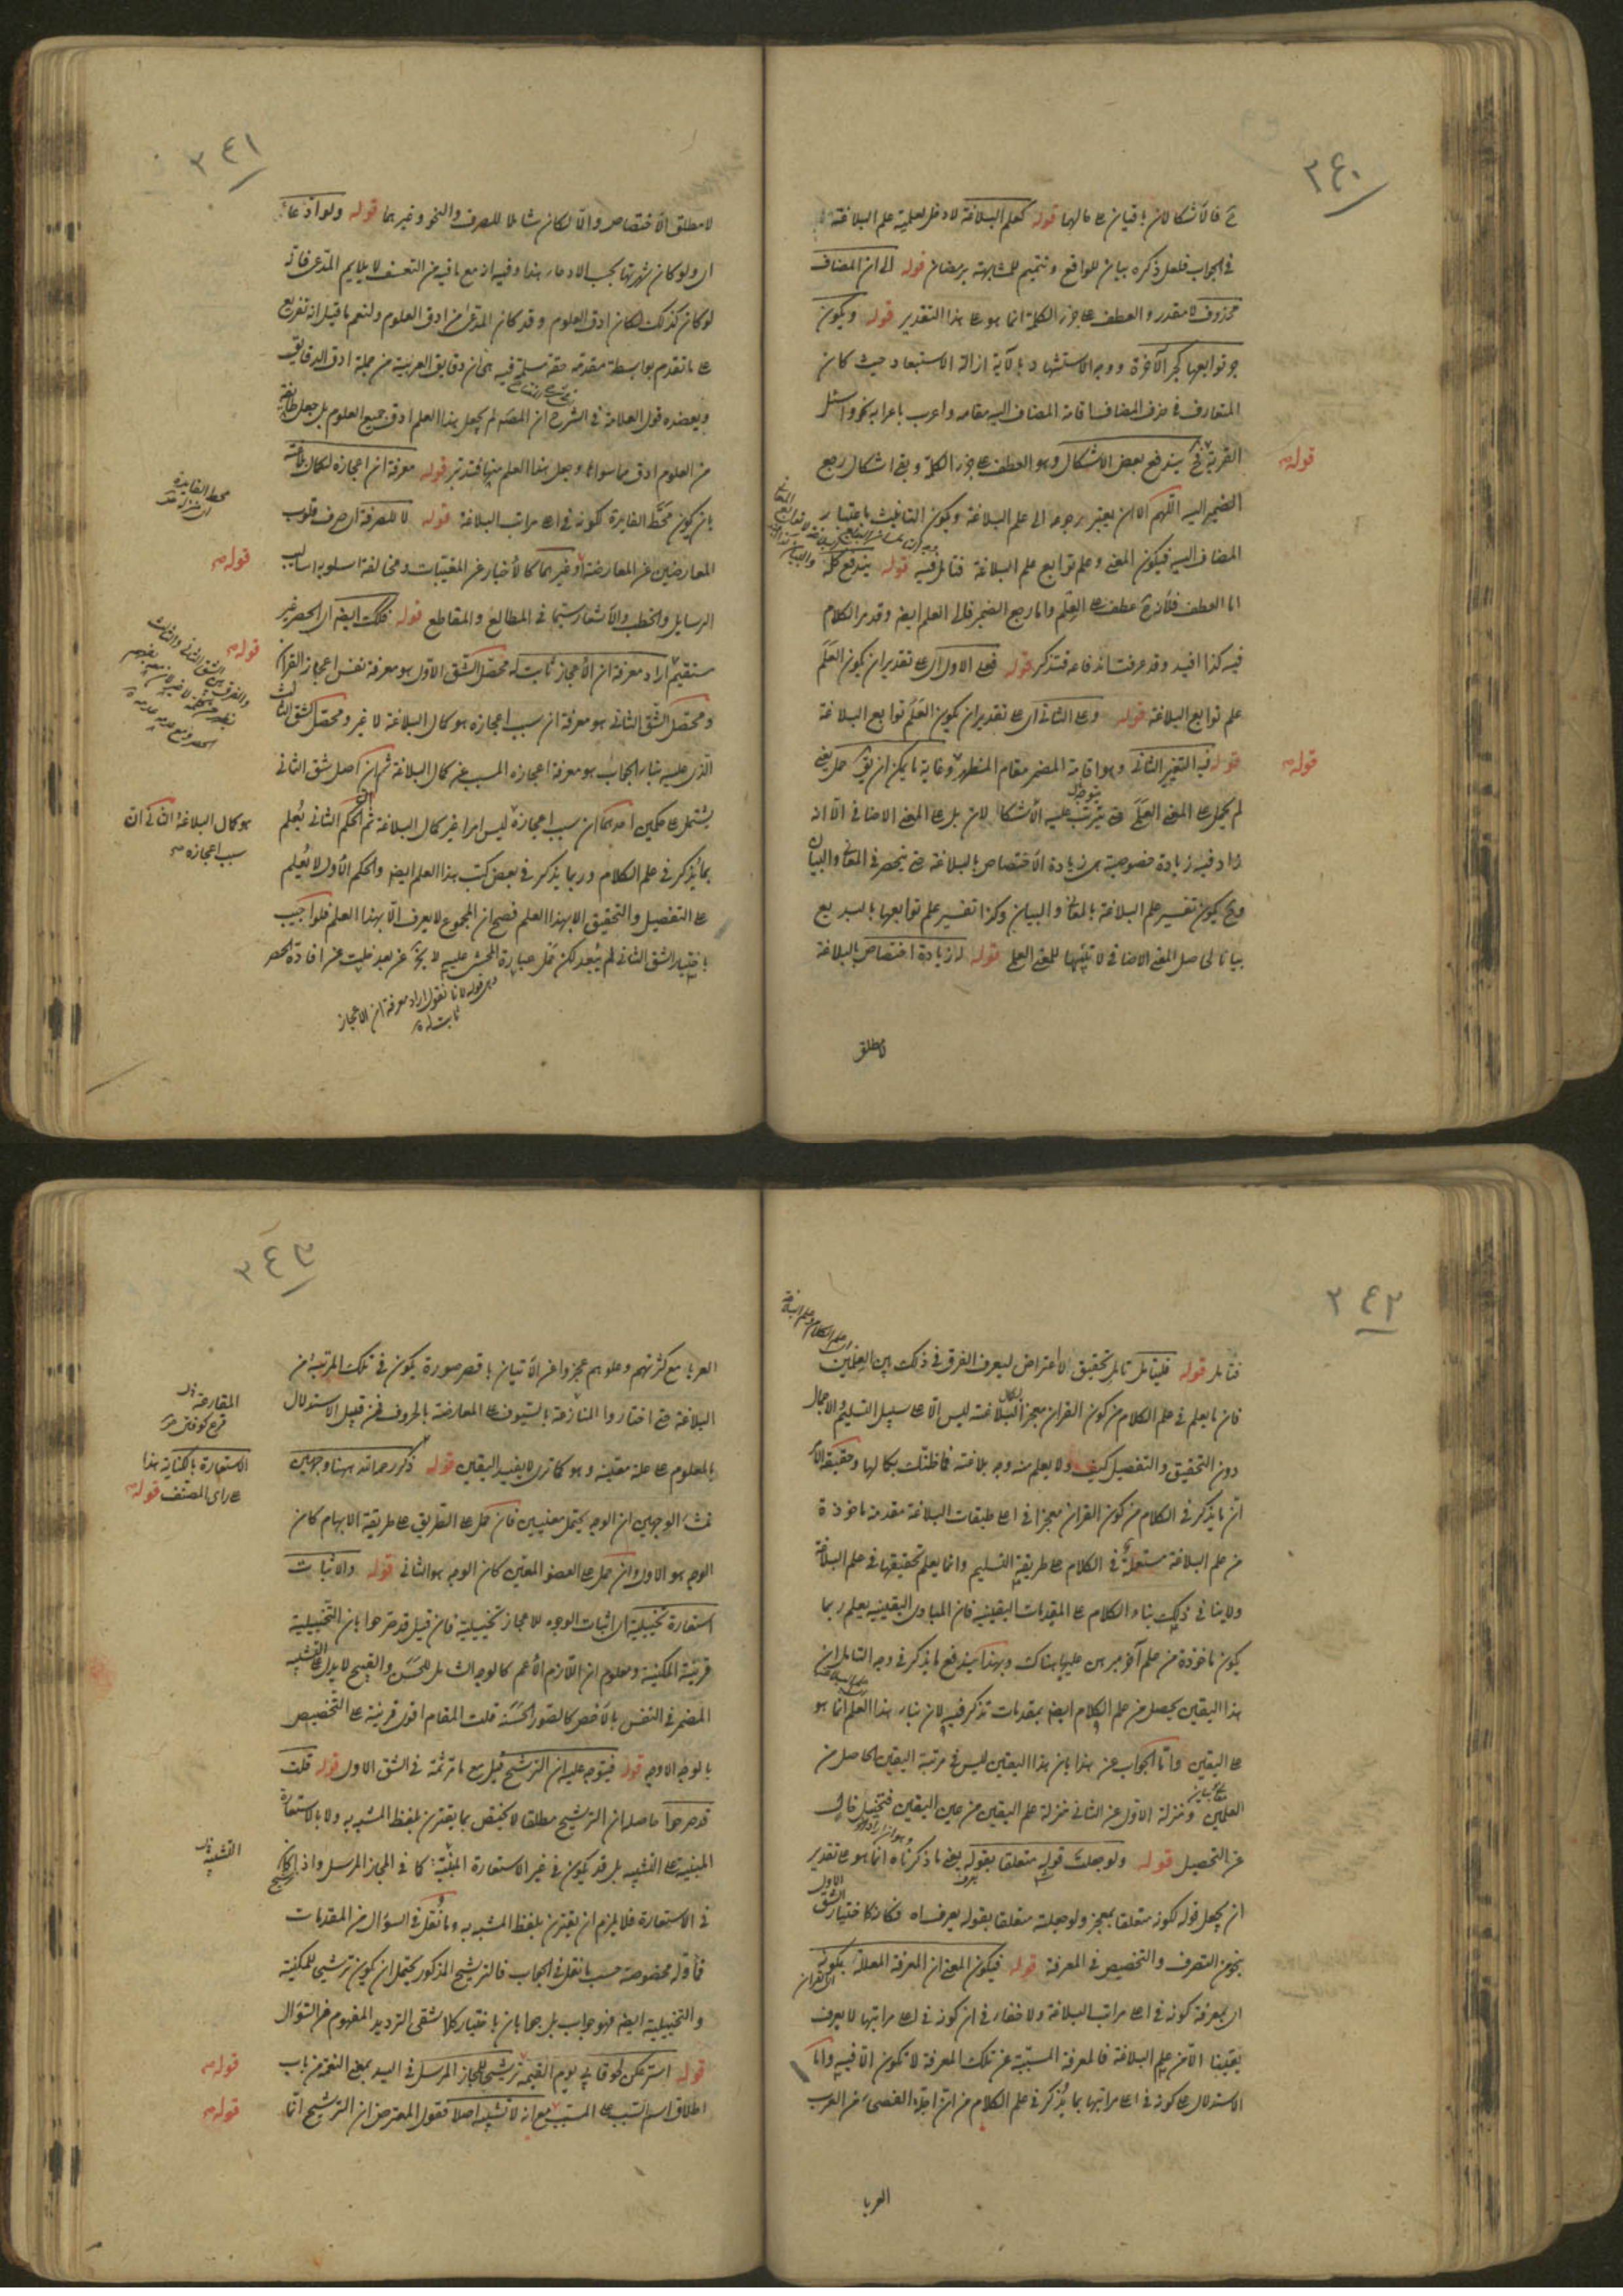 ٢٤٠
ح فالاشكالان باقيان على حالهما قوله كعلم البلاغة لا دخل لعلمية علم البلاغة
في الجواب فلعل ذكره بيان للواقع وتتميم للمشابهة برمضان قوله الى ان المضاف
محذوف لا مقدر والعطف على جزء الكلمة انما هو على هذا التقدير قوله ويكون
جر توابعها كجر الآخرة ووجه الاستشهاد بالآية ازالة الاستبعاد حيث كان
المتعارف في حذف المضاف اقامة المضاف اليه مقامه واعرب باعرابه نحو واسئل
القرية فح يندفع بعض الاشكال وهو العطف على جزء الكلمة وبقى اشكال رجع
الضمير اليه اللهم الا ان يعتبر رجوعه الى علم البلاغة ويكون التانيث باعتبار
المضاف اليه فيكون المعنى وعلم توابع علم البلاغة فتامل فيه قوله يندفع كله
اما العطف فلأنه ح عطف على العلم واما رجع الضمير فالى العلم ايضا وقد مر الكلام
فيه كذا افيد وقد عرفت اندفاعه فتذكر قوله فعلى الاول اى على تقدير ان يكون العلم
علم توابع البلاغة قوله وعلى الثانى اى على تقدير ان يكون العلم توابع البلاغة
قوله فيه التغيير الثانى وهو اقامة المضمر مقام المظهر وغاية ما يمكن ان يق
لم يحمل على المعنى العلمى حتى يترتب عليه الاشكالان بل على المعنى الاضافى الا انه
زاد فيه زيادة خصوصية هى زيادة الاختصاص بالبلاغة حتى ينحصر في المعانى والبيان
وح يكون تفسير علم البلاغة بالمعانى والبيان وكذا تفسير علم توابعها بالبديع
بيانا لحاصل المعنى الاضافى لا تنبيها للمعنى العلمى قوله له زيادة اختصاص بالبلاغة
قوله
قوله
لا مطلق
٢٤١
لا مطلق الاختصاص والا لكان شاملا للصرف والنحو وغيرهما قوله ولو ادعاء
اى ولو كان شهرتها بحسب الادعاء هذا وفيه انه مع ما فيه من التعسف لا يلايم المدعى فانه
لو كان كذلك لكان ادق العلوم وقد كان المدعى من ادق العلوم ولنعم ما قيل انه تفريع
على ما تقدم بواسطة مقدمة حقة مسلمة فيه هى ان دقايق العربية من جملة ادق الدقايق
ويعضده قول العلامة في الشرح ان المصنف لم يجعل هذا العلم ادق جميع العلوم بل جعل طايفة
من العلوم ادق مما سواها وجعل هذا العلم منها فتدبر قوله معرفة ان اعجازه لكمال بلاغته
بان يكون محط الفايدة كونه في اعلى مراتب البلاغة قوله لا للصرفة اى صرف قلوب
المعارضين عن المعارضة او غيرهما كالاخبار عن المغيبات ومخالفة اسلوبه اساليب
الرسايل والخطب والاشعار سيما في المطالع والمقاطع قوله فكذلك ايضا اى الحصر غير
مستقيم اراد معرفة ان الاعجاز ثابت له محصل الشق الاول هو معرفة نفس اعجاز القرآن
ومحصل الشق الثانى هو معرفة ان سبب اعجازه هو كمال البلاغة لا غير ومحصل الشق الثالث
الذى عليه بناء الجواب هو معرفة اعجازه المسبب عن كمال البلاغة ثم ان حاصل شق الثانى
يشتمل على حكمين احدهما ان سبب اعجازه ليس امرا غير كمال البلاغة ثم الحكم الثانى يعلم
بما يذكر في علم الكلام وربما يذكر في بعض كتب هذا العلم ايضا والحكم الاول لا يعلم
على التفصيل والتحقيق الا بهذا العلم فصح ان المجموع لا يعرف الا بهذا العلم فلو اجيب
باختيار الشق الثانى لم يبعد لكن حمل عبارة المحشى عليه لا يخ عن بعد فليت عن افادة الحصر
محط الفايدة
قوله
قوله
هو كمال البلاغة الثانى ان
سبب اعجازه
وهى قوله لانا نقول اراد معرفة ان الاعجاز
ثابت له
٢٤٢
فتامل قوله فليتامل تامل تحقيق الاعتراض ليعرف الفرق في ذلك بين العلمين
فان ما يعلم في علم الكلام من كون القرآن معجزا لكمال البلاغة ليس الا على سبيل التسليم والاجمال
دون التحقيق والتفصيل كيف ولا يعلم منه وجه بلاغته فما ظنك بكمالها وحقيقة الامر
ان ما يذكر في الكلام من كون القرآن معجزا في اعلى طبقات البلاغة مقدمة ماخوذة
من علم البلاغة مستعملة في الكلام على طريقة التسليم وانما يعلم تحقيقها في علم البلاغة
ولا ينافى ذلك بناء الكلام على المقدمات اليقينية فان المبادى اليقينية بعلم ربما
يكون ماخوذة من علم آخر مبرهن عليها هناك وبهذا يندفع ما يذكر في وجه التامل ان
هذا اليقين يحصل من علم الكلام ايضا بمقدمات تذكر فيه لان بناء هذا العلم انما هو
على اليقين واما الجواب عن هذا بان هذا اليقين ليس في مرتبة اليقين الحاصل من
العلمين ومنزلة الاول عن الثانى منزلة علم اليقين من عين اليقين فتخييل خال
عن التحصيل قوله ولو جعلت قوله متعلقا بقوله يعنى ما ذكرناه انما هو على تقدير
ان يجعل قوله لكونه متعلقا بمعجز ولو جعلته متعلقا بقوله يعرف اه فكانه اختيار الشق الاول
بنحو من التصرف والتخصيص في المعرفة قوله فيكون المعنى ان المعرفة المعللة بكونه
اى بمعرفة كونه في اعلى مراتب البلاغة ولا خفاء في ان كونه في اعلى مراتبها لا يعرف
يقينا الا من علم البلاغة فالمعرفة المسببة عن تلك المعرفة لا تكون الا فيه واما
الاستدلال على كونه في اعلى مراتبها بما يذكر في علم الكلام من ان اجلة الفصحاء من العرب
العربا
٢٤٣
العربا مع كثرتهم وعلوهم عجزوا عن الاتيان باقصر صورة يكون في تلك المرتبة من
البلاغة حتى اختاروا المنازعة بالسيوف على المعارضة بالحروف فمن قبيل الاستدلال
بالمعلوم على علة معينة وهو كما ترى لا يفيد اليقين قوله ذكر رحمه الله ههنا وجهين
منشاء الوجهين ان الوجه يحتمل معنيين فان حمل على الطريق على طريقة الايهام كان
الوجه هو الاول وان حمل على العضو المعين كان الوجه هو الثانى قوله والاثبات
استعارة تخييلية اى اثبات الوجوه للاعجاز تخييلية فان قيل قد صرحوا بان التخييلية
قرينة المكنية ومعلوم ان اللازم الاعم كالوجه الشامل للحسن والقبيح لا يدل على التشبيه
المضمر في النفس بالاخص كالصور الحسنة قلت المقام اقوى قرينة على التخصيص
بالوجه الاوجه قوله فيتوجه عليه ان الترشيح قبل مع ما ترتمة في الشق الاول قوله قلت
قد صرحوا حاصله ان الترشيح مطلقا لا يختص بما يقترن بلفظ المشبه به ولا بالاستعارة
المبنية على التشبيه بل قد يكون في غير الاستعارة المبنية كما في المجاز المرسل واذا كان
في الاستعارة فلا يلزم ان يقترن بلفظ المشبه به وما نقل في السؤال من المقدمات
مأولة مخصوصة حسب ما نقل في الجواب فالترشيح المذكور يحتمل ان يكون ترشيحى للمكنية
والتخييلية ايضا فهو جواب بل جوابان باختيار كلا شقى الترديد المفهوم من السؤال
قوله اسرعكن لحوقا بى يوم القيمة ترشيحى للمجاز المرسل في اليد بمعنى النعمة من باب
اطلاق اسم السبب على المسبب مع انه لا تشبيه اصلا فقول المعترض ان الترشيح انما
المقارعة
الاستعارة بالكناية هذا
على راى المصنف قوله
التشبيه
قوله
قوله